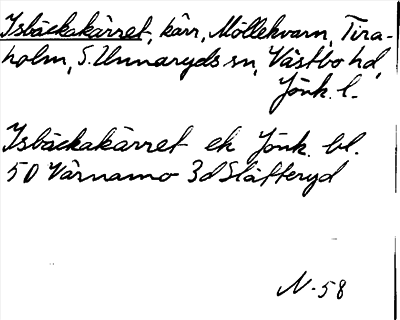 Isbäckakärret, kärr, Möllekvarn, Tira-
holm, S. Unnaryds sn, Västbo hd,
Jönk. l.
Isbäckakärret ek Jönk. bl.
5D Värnamo 3d Slätteryd
N-58